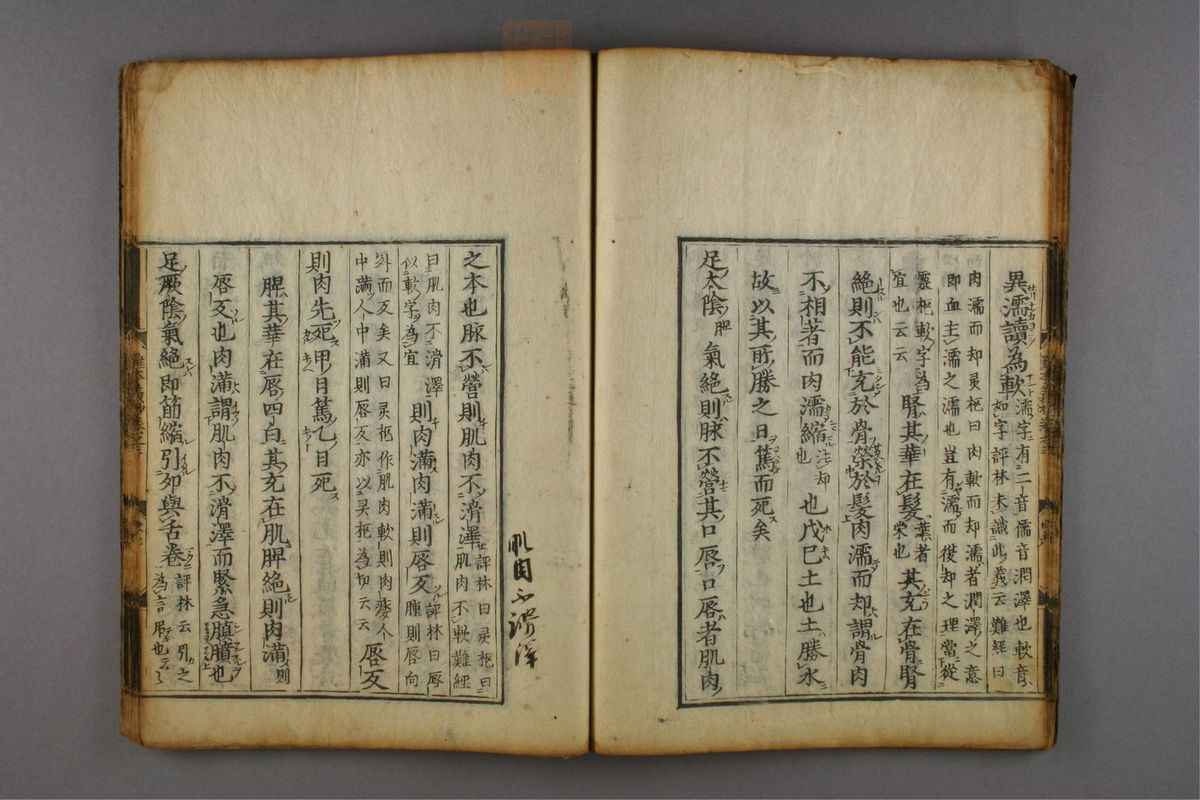 異濡讀為軟 濡字有二音儒音潤澤也軟音
如字評林未識此義云難經曰
肉濡而却灵枢曰肉軟而却濡者潤澤之意
即血主濡之濡也豈有濡而從却之理當從
靈枢軟字為
宜也云云 腎其華在髮 葉者
宋也 其充在骨腎
絶則不能充於骨榮於髮肉濡而却謂骨肉
不相著而肉濡縮 注却
也 也戊巳土也土勝水
故以其所勝之日篤而死矣
足太陰 脾 氣絶則脉不營其口唇口唇者肌肉
之本也脉不營則肌肉不滑澤 評林曰灵枢曰
肌肉不軟難經
曰肌肉不滑澤
似軟字為宜 則肉滿肉滿則唇反 評林曰唇
腫則唇向
外而反矣又曰灵枢作肌肉軟則肉萎人
中滿人中滿則唇反亦以灵枢為切云云 唇反
則肉先死甲日篤乙日死
脾其華在唇四白其充在肌脾絶則肉滿 則
唇反也肉滿謂肌肉不滑澤而緊急䐜膹也
足厥陰氣絶即筋縮引夘與舌卷 評林云引之
為言吊也云々
肌肉不滑澤